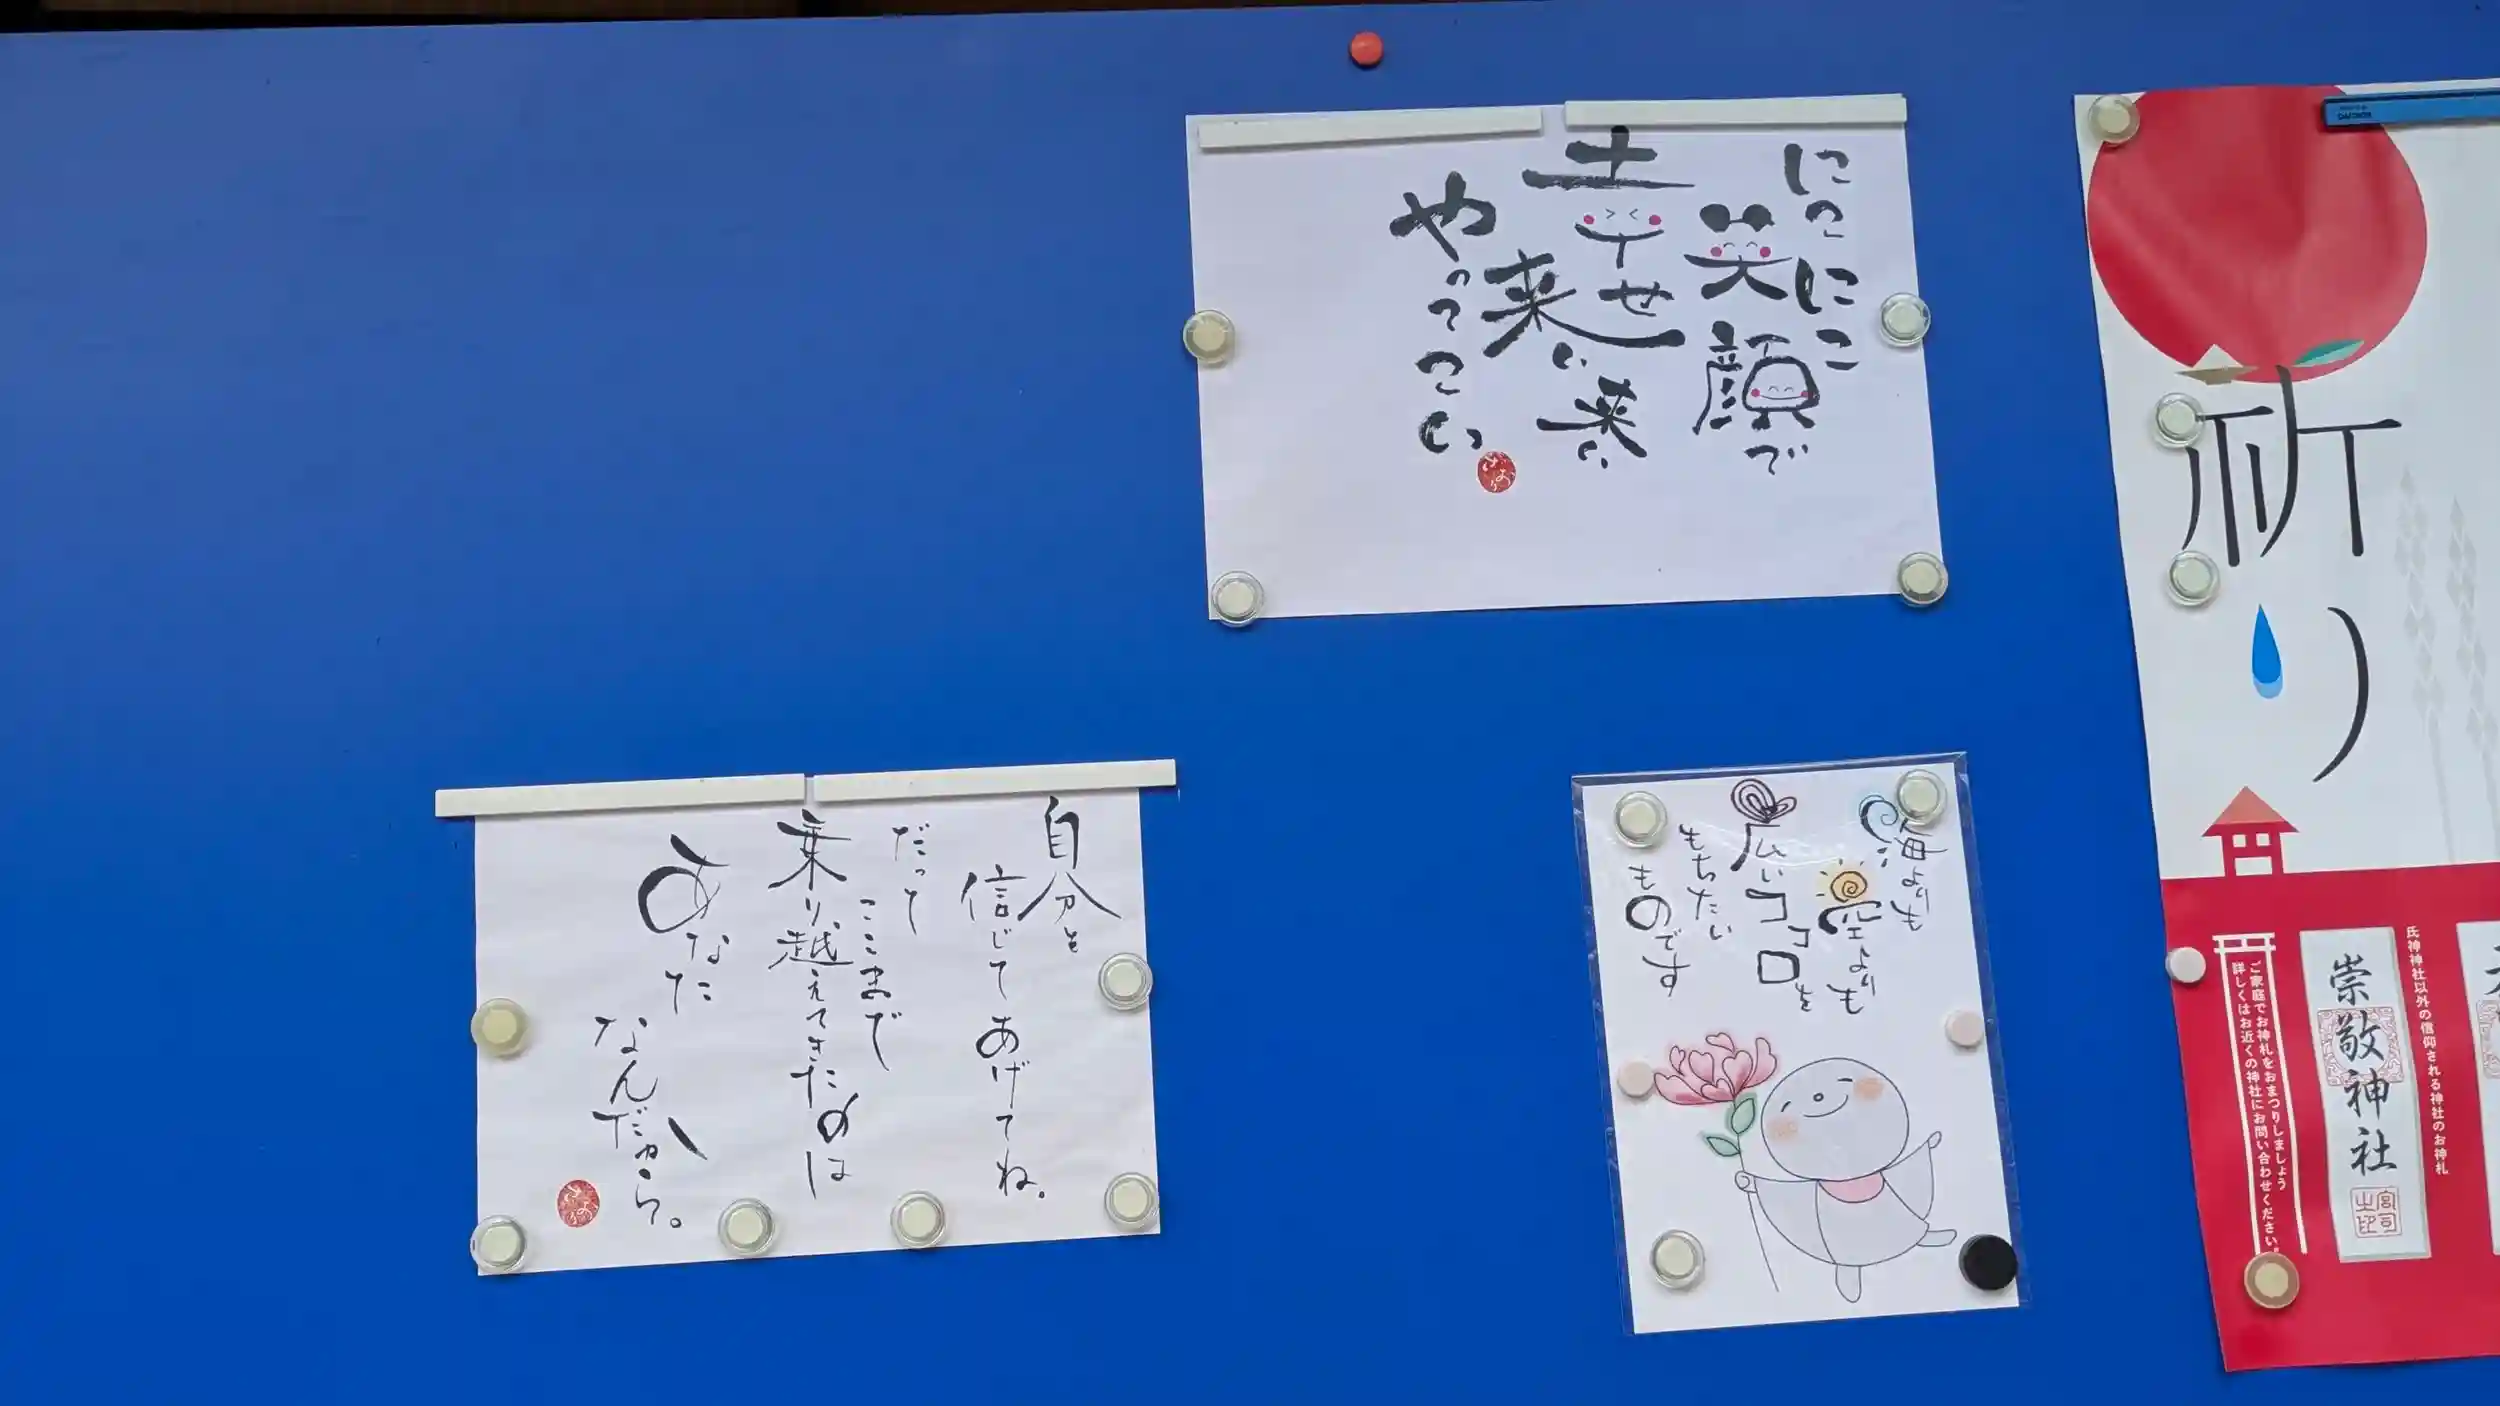 にこにこ
笑顔で
幸せ
来い来い
やってこい
さおり
自分を
信じてあげてね。
だって
ここまで
乗り越えてきたのは
あなた
なんだから。
さおり
海よりも
空よりも
広いココロを
もちたい
ものです
祈り
氏神神社以外の信仰される神社のお神札
崇敬神社
宮司之印
ご家庭でお神札をおまつりしましょう
詳しくはお近くの神社にお問い合わせください。